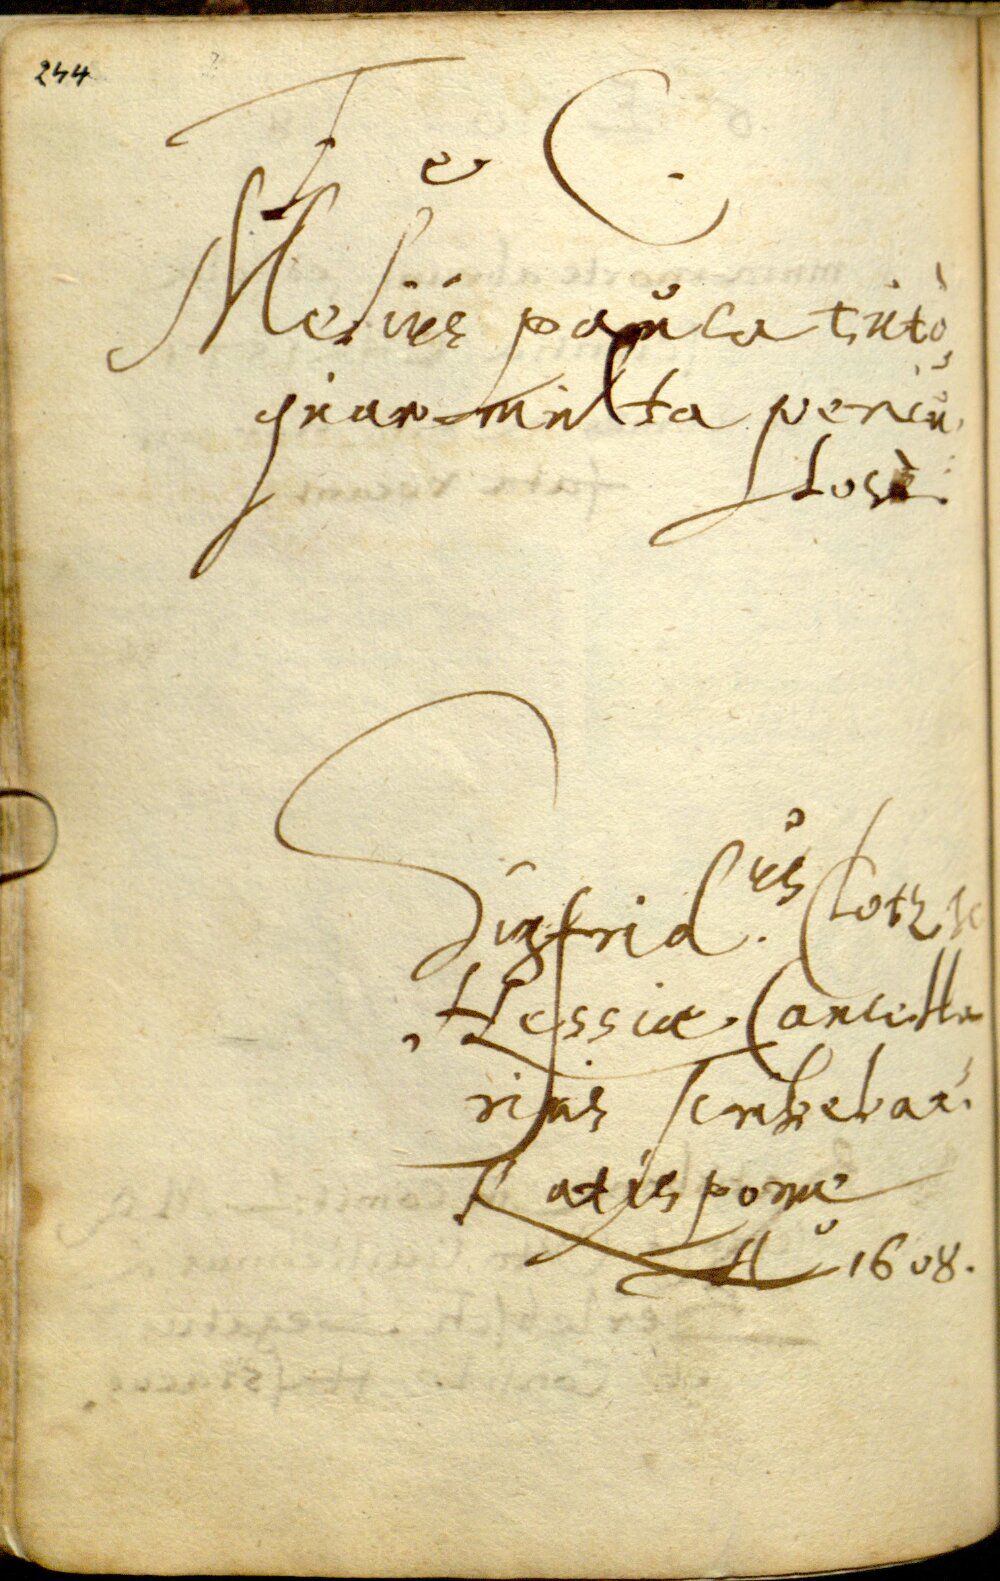 244
T e C.
Melius pauca tutò,
quam multa pericu,
losè.
Sigfrid.us Clotz
Hessiae Cancella
rius scribebat
Ratisponae
Aº 1608.